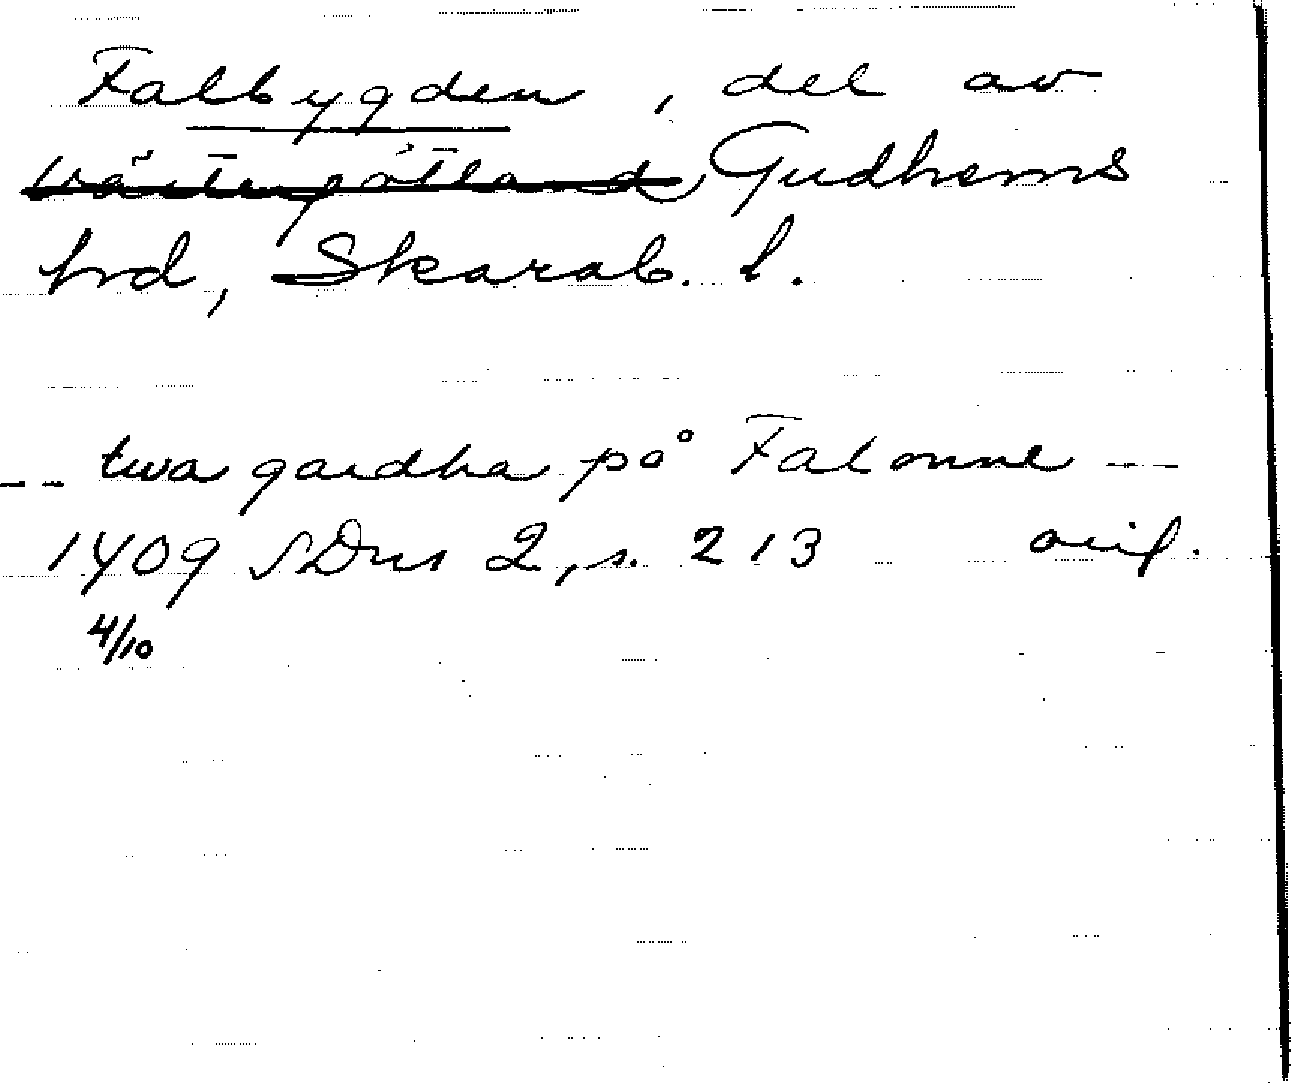 Falbygden, del av
Västergötland, Gudhems
hrd, Skarab. l.
-- twa gardha på Falonne --
1409 SDns 2, s. 213 orig.
4/10